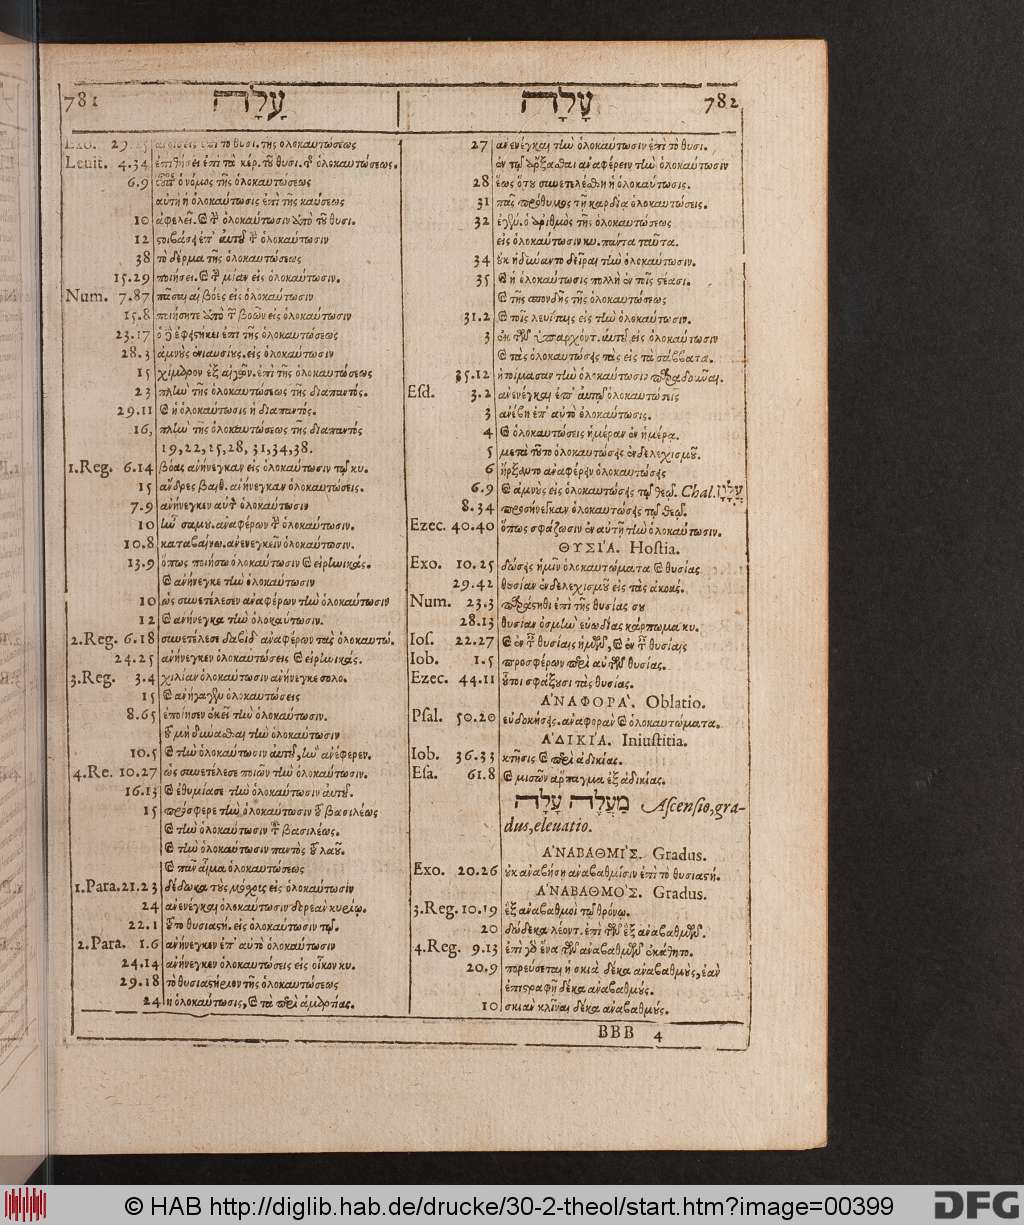 781 עָלָה
Exo. 29.25 ἀνοίσεις ἐπὶ τὸ θυσι. τῆς ὁλοκαυτώσεως
Leuit. 4.34 ἐπιθήσει ἐπὶ τὰ κέρ. τοῦ θυσι. τῆς ὁλοκαυτώσεως.
6.9 οὗτος ὁ νόμος τῆς ὁλοκαυτώσεως
αὐτὴ ἡ ὁλοκαύτωσις ἐπὶ τῆς καύσεως
10 ἀφελεῖ. καὶ τὴν ὁλοκαύτωσιν ἀπὸ τοῦ θυσι.
12 στοιβάσει ἐπ' αὐτοῦ τὴν ὁλοκαύτωσιν
38 τὸ δέρμα τῆς ὁλοκαυτώσεως
15.29 ποιήσει. καὶ τὴν μίαν εἰς ὁλοκαύτωσιν.
Num. 7.87 πᾶσαι αἱ βόες εἰς ὁλοκαύτωσιν
15.8 ποιήσητε ἀπὸ τῶν βοῶν εἰς ὁλοκαύτωσιν
23.17 ὁ δὲ ἐφέστηκει ἐπὶ τῆς ὁλοκαυτώσεως
28.3 ἀμνοὺς ἐνιαυσίους. εἰς ὁλοκαύτωσιν
15 χίμαρον ἐξ αἰγῶν. ἐπὶ τῆς ὁλοκαυτώσεως
23 πλὴν τῆς ὁλοκαυτώσεως τῆς διαπαντός.
29.11 καὶ ἡ ὁλοκαύτωσις ἡ διαπαντός.
16, πλὴν τῆς ὁλοκαυτώσεως τῆς διαπαντός
19, 22, 25, 28, 31, 34, 38.
1.Reg. 6.14 βόας ἀνήνεγκαν εἰς ὁλοκαύτωσιν τῷ κυ.
15 ἄνδρες βαιθ. ἀνήνεγκαν ὁλοκαυτώσεις.
7.9 ἀνήνεγκεν αὐτὸν ὁλοκαύτωσιν
10 ἦν σαμου. ἀναφέρων τὴν ὁλοκαύτωσιν.
10.8 καταβαίνω. ἀνενεγκεῖν ὁλοκαύτωσιν.
13.9 ὅπως ποιήσω ὁλοκαύτωσιν καὶ εἰρηνικάς.
καὶ ἀνήνεγκε τὴν ὁλοκαύτωσιν
10 ὡς συνετέλεσεν ἀναφέρων τὴν ὁλοκαύτωσιν
12 καὶ ἀνήνεγκα τὴν ὁλοκαύτωσιν.
2.Reg. 6.18 συνετέλεσε δαβὶδ ἀναφέρων τὰς ὁλοκαυτώ.
24.25 ἀνήνεγκεν ὁλοκαυτώσεις καὶ εἰρηνικάς.
3.Reg. 3.4 χιλίαν ὁλοκαύτωσιν ἀνήνεγκε σολο.
15 καὶ ἀνήγαγεν ὁλοκαυτώσεις
8.65 ἐποίησεν ἐκεῖ τὴν ὁλοκαύτωσιν.
τοῦ μὴ δύναθαι τὴν ὁλοκαύτωσιν
10.5 καὶ τὴν ὁλοκαύτωσιν αὐτοῦ, ἣν ἀνέφερεν.
4.Re. 10.27 ὡς συνετέλεσε ποιῶν τὴν ὁλοκαύτωσιν.
16.13 καὶ ἐθυμίασε τὴν ὁλοκαύτωσιν αὐτοῦ.
15 πρόσφερε τὴν ὁλοκαύτωσιν τοῦ βασιλέως
καὶ τὴν ὁλοκαύτωσιν τοῦ βασιλέως.
καὶ τὴν ὁλοκαύτωσιν παντὸς τοῦ λαοῦ.
καὶ πᾶν αἷμα ὁλοκαυτώσεως
1.Para. 21.23 δέδωκα τοὺς μόσχους εἰς ὁλοκαύτωσιν
24 ἀνενέγκαι ὁλοκαύτωσιν δωρεὰν κυρίῳ.
22.1 τοῦτο θυσιαστή. εἰς ὁλοκαύτωσιν τῷ.
2.Para. 1.6 ἀνήνεγκεν ἐπ' αὐτὸ ὁλοκαύτωσιν
24.14 ἀνήνεγκεν ὁλοκαυτώσεις εἰς οἶκον κυ.
29.18 τὸ θυσιαστήριον τῆς ὁλοκαυτώσεως
24 ἡ ὁλοκαύτωσις, καὶ τὰ περὶ ἁμαρτίας.
עָלָה 782
27 ἀνενέγκαι τὴν ὁλοκαύτωσιν ἐπὶ τὸ θυσι.
ἐν τῷ ἄρξαθαι ἀναφέρειν τὴν ὁλοκαύτωσιν
28 ἕως ὅτου συνετελέθη ἡ ὁλοκαύτωσις.
31 πᾶς πρόθυμος τῇ καρδίᾳ ὁλοκαυτώσεις.
32 ἐγέν. ὁ ἀριθμὸς τῆς ὁλοκαυτώσεως
εἰς ὁλοκαύτωσιν κυ. πάντα ταῦτα.
34 οὐκ ἠδύναντο δεῖραι τὴν ὁλοκαύτωσιν.
35 καὶ ἡ ὁλοκαύτωσις πολλὴ ἐν τοῖς στέασι.
καὶ τῆς σπονδῆς τῆς ὁλοκαυτώσεως
31.2 καὶ τοῖς λευίταις εἰς τὴν ὁλοκαύτωσιν.
3 ἐκ τῶν ὑπαρχόντ. αὐτοῦ εἰς ὁλοκαύτωσιν
καὶ τὰς ὁλοκαυτώσεις τὰς εἰς τὰ σάββατα.
35.12 ἡτοίμασαν τὴν ὁλοκαύτωσιν παραδοῦναι.
Esd. 3.2 ἀνενέγκαι ἐπ' αὐτῷ ὁλοκαυτώσεις
3 ἀνέβη ἐπ' αὐτὸ ὁλοκαύτωσις.
4 καὶ ὁλοκαυτώσεις ἡμέραν ἐν ἡμέρᾳ.
5 μετὰ τοῦτο ὁλοκαυτώσεις ἐνδελεχισμοῦ.
6 ἤρξαντο ἀναφέρειν ὁλοκαυτώσεις
6.9 καὶ ἀμνοὺς εἰς ὁλοκαυτώσεις τῷ θεῷ. Chal. עֲלָוָן
8.34 προσήνεγκαν ὁλοκαυτώσεις τῷ θεῷ.
Ezec. 40.40 ὅπως σφάζωσιν ἐν αὐτῇ τὴν ὁλοκαύτωσιν.
ΘΥΣΙΑ. Hostia.
Exo. 10.25 δώσεις ἡμῖν ὁλοκαυτώματα καὶ θυσίας
29.42 θυσίαν ἐνδελεχισμοῦ εἰς τὰς ἀκοάς.
Num. 23.3 παράστηθι ἐπὶ τῆς θυσίας σου
28.13 θυσίαν ὀσμὴν εὐωδίας κάρπωμα κυ.
Ios. 22.27 καὶ ἐν ταῖς θυσίαις ἡμῶν, καὶ ἐν ταῖς θυσίαις
Iob. 1.5 προσφέρων περὶ αὐτῶν θυσίας.
Ezec. 44.11 οὗτοι σφάξουσι τὰς θυσίας.
ἈΝΑΦΟΡΆ. Oblatio.
Psal. 50.20 εὐδοκήσεις. ἀναφορὰν καὶ ὁλοκαυτώματα.
ἈΔΙΚΊΑ. Iniustitia.
Iob. 36.33 κτῆσις καὶ περὶ ἀδικίας.
Esa. 61.8 καὶ μισῶν ἅρπαγμα ἐξ ἀδικίας.
מַעֲלֶה עָלָה Ascensio, gra-
dus, eleuatio.
ἈΝΑΒΑΘΜΊΣ. Gradus.
Exo. 20.26 οὐκ ἀναβήσῃ ἀναβαθμίσιν ἐπὶ τὸ θυσιαστή.
ἈΝΑΒΑΘΜΌΣ. Gradus.
3.Reg. 10.19 ἓξ ἀναβαθμοὶ τῷ θρόνῳ.
20 δώδεκα λέοντ. ἐπὶ τῶν ἓξ ἀναβαθμῶν.
4.Reg. 9.13 ἐπὶ γὰρ ἕνα τῶν ἀναβαθμῶν ἐκάθητο.
20.9 πορεύσεται ἡ σκιὰ δέκα ἀναβαθμοὺς, ἐὰν
ἐπιστραφῇ δέκα ἀναβαθμούς.
10 σκιὰν κλῖναι δέκα ἀναβαθμούς.
BBB 4
© HAB http://diglib.hab.de/drucke/30-2-theol/start.htm?image=00399
DFG